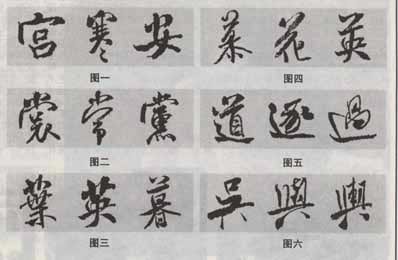 宫 寒 安
图一
裳 常 黨
图二
葉 英 暮
图三
慕 花 英
图四
道 逐 過
图五
吴 與 輿
图六